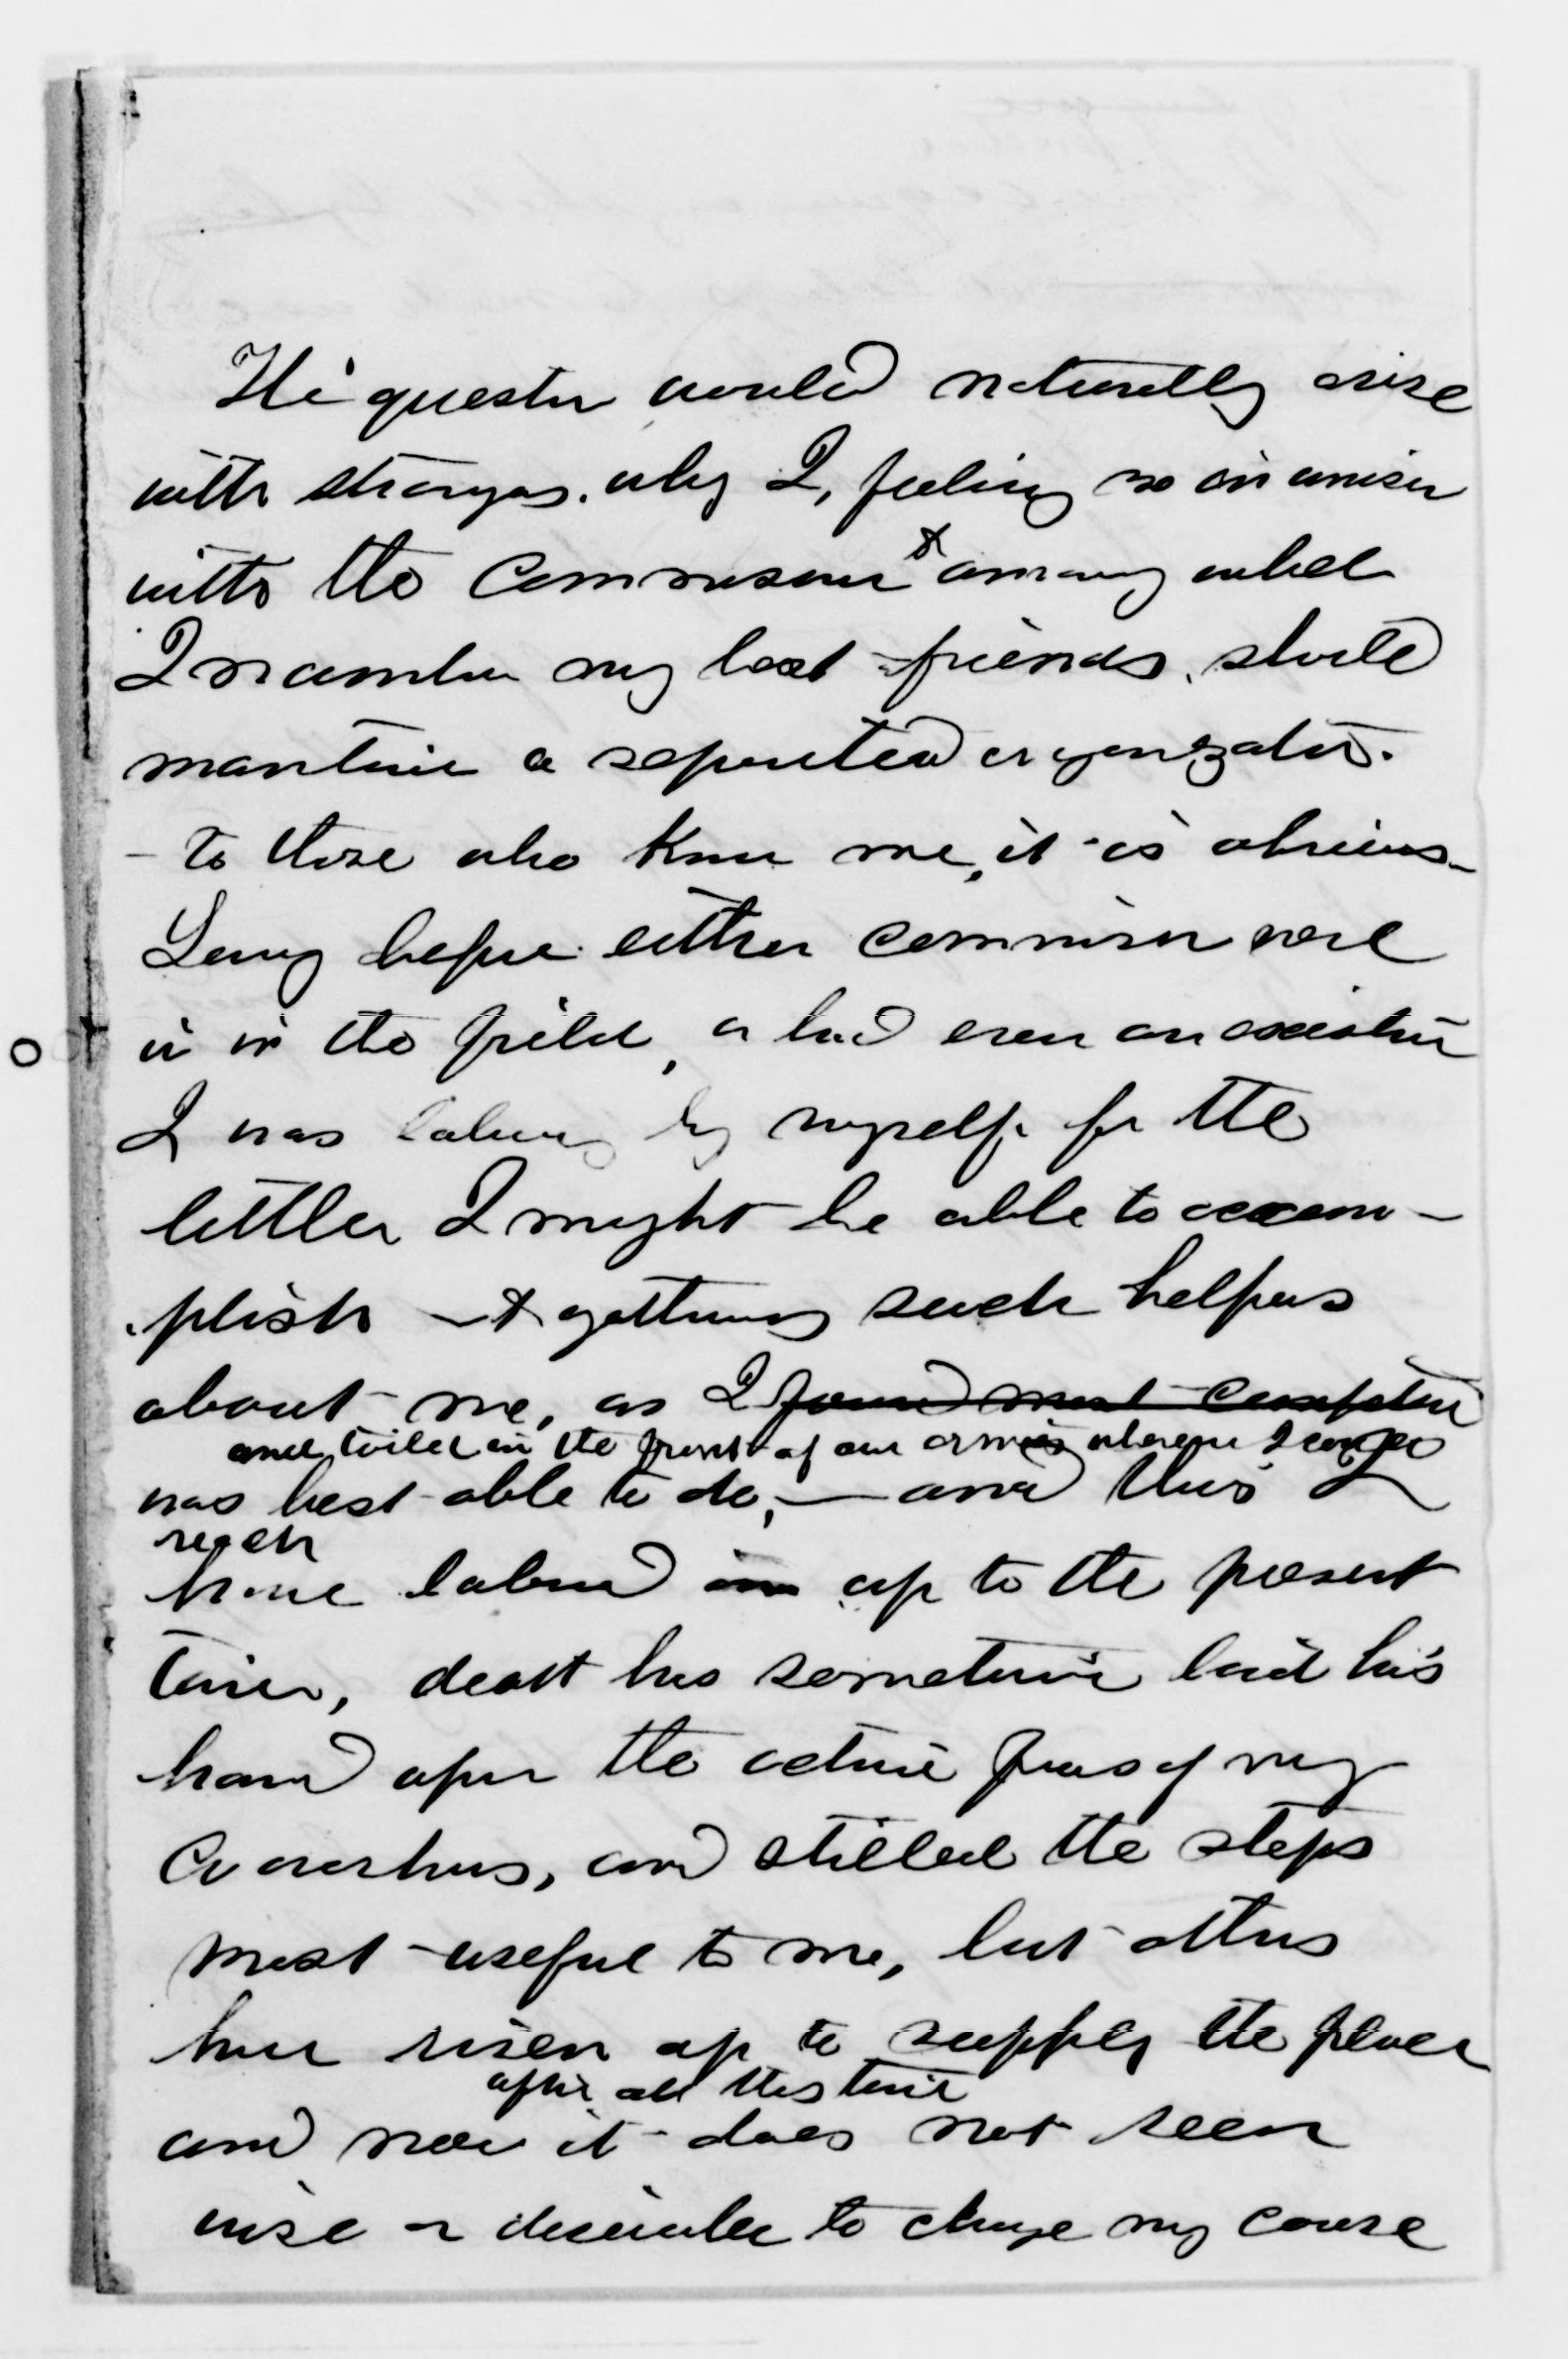 The question would naturally arise
with strangers. why I, feeling so in unison
with the Commissions & among whch
I number my best friends, should
mantain a separated organization.
- to those who know me, it is obvious -
Long before either commission were
in the field, or had even an existence
I was laboring by myself for the
little I might be able to accom -
plish - & gathering such helpers
about me, as I found most competent
and toiled in the front of our armies wherever I could
was best able to do, — and this I
reach
have labored up to the present
time, death has sometime laid his
hand upon the active forms of my
Coworkers, and stilled the steps
most useful to me, but others
have risen up to supply the place
after all this time
and now it does not seem
wise or desirable to change my course